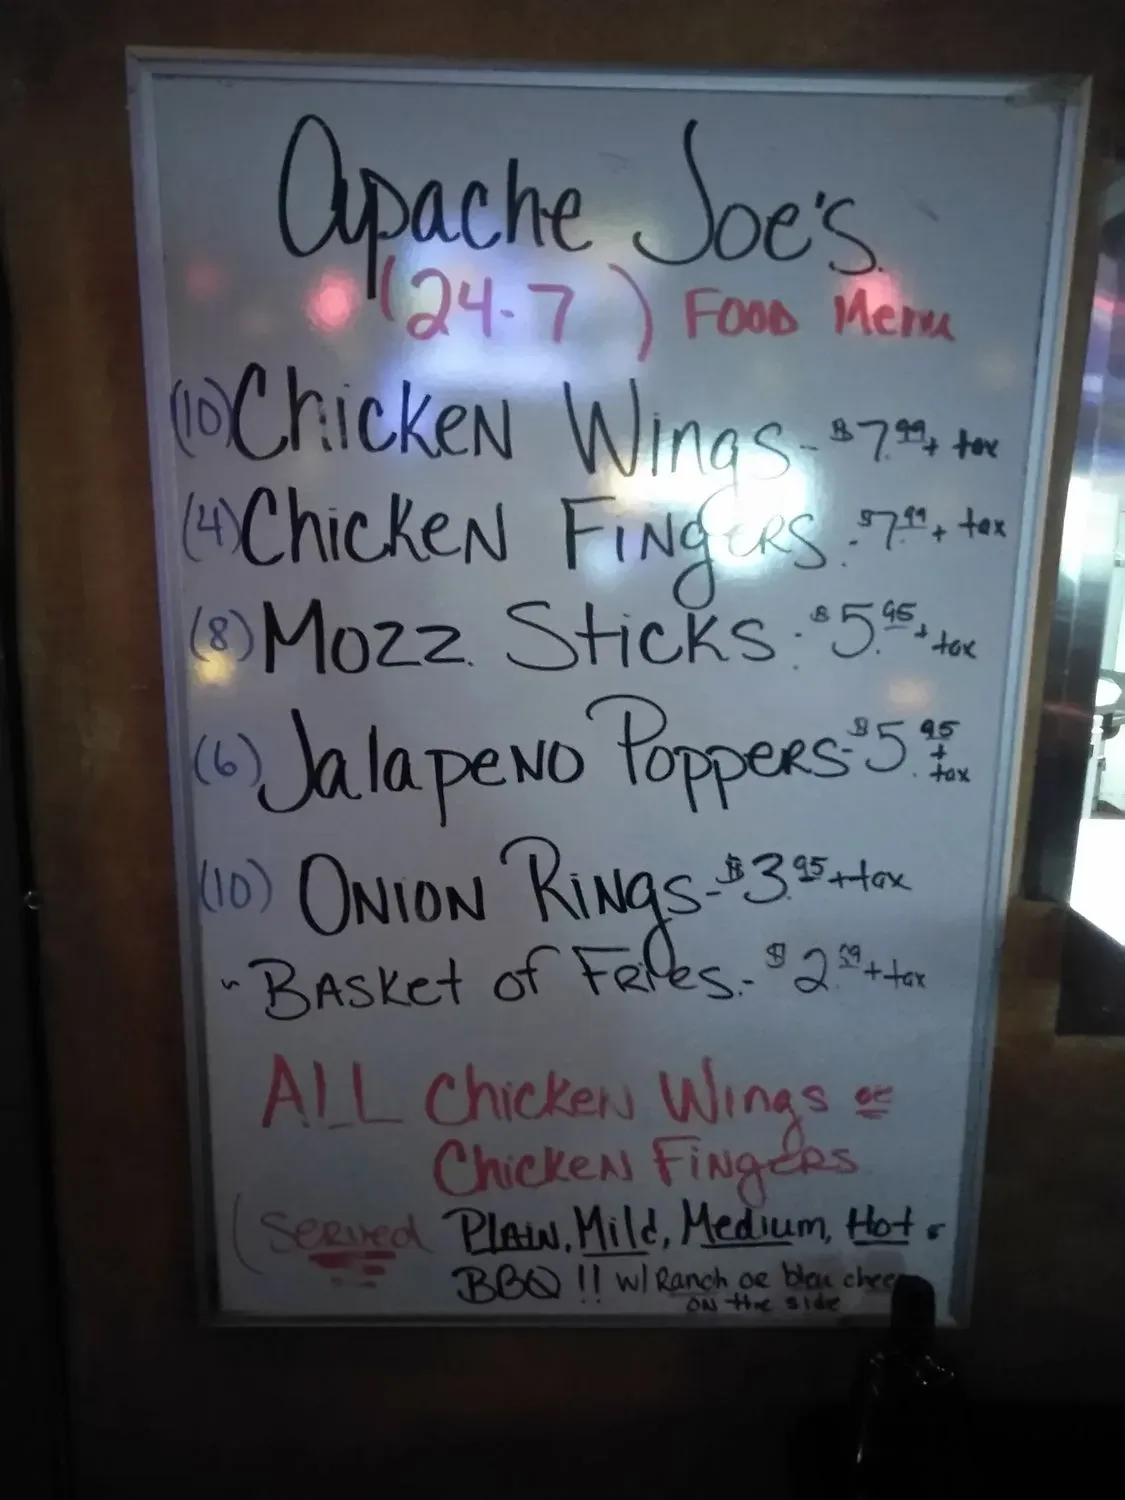 Apache Joe's
(24-7) Food Menu
(10) Chicken Wings - $7.99 + tax
(4) Chicken Fingers - $7.99 + tax
(8) Mozz. Sticks - $5.95 + tax
(6) Jalapeno Poppers - $5.95 + tax
(10) Onion Rings - $3.95 + tax
~ Basket of Fries - $2.59 + tax
ALL Chicken Wings or
Chicken Fingers
(Served Plain, Mild, Medium, Hot
BBQ !! w/ Ranch or bleu chee
on the side